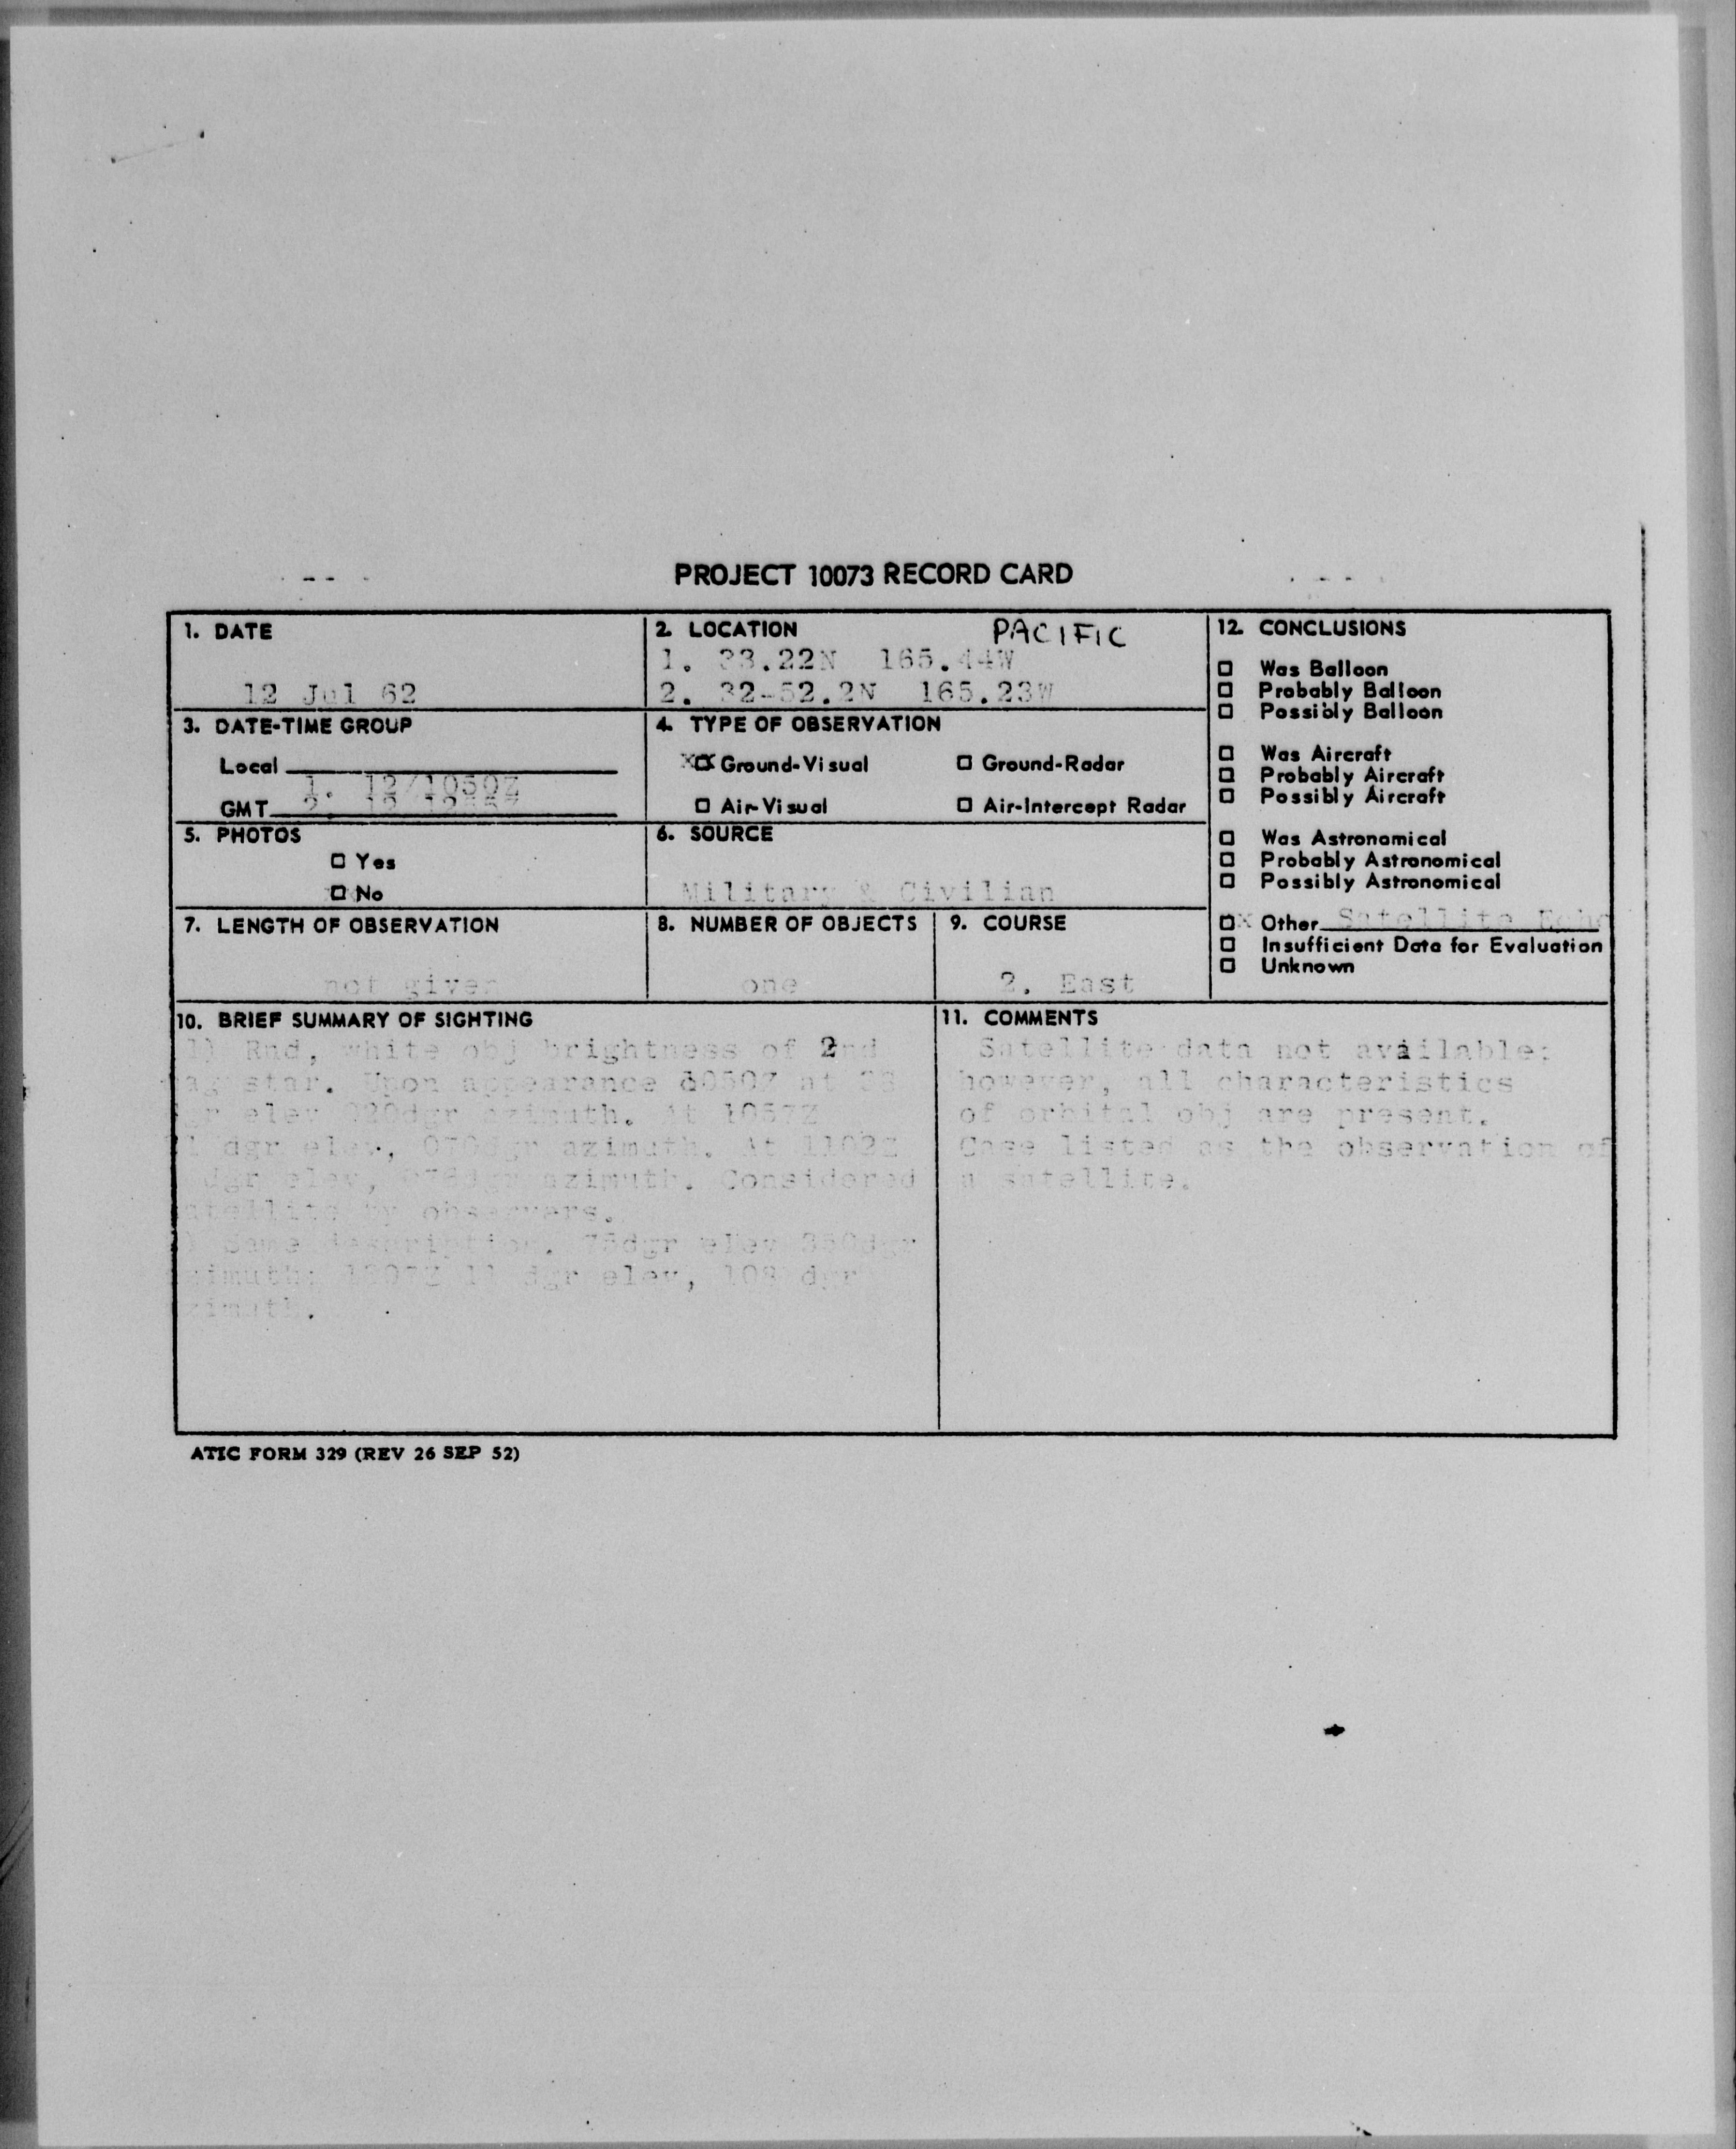 PROJECT 10073 RECORD CARD
1. DATE
12 Jul 62
2. LOCATION PACIFIC
1. 33.22N 165.44W
2. 32-52.2N 165.23W
3. DATE-TIME GROUP
Local
1. 12/1050Z
GMT 2. 12
4. TYPE OF OBSERVATION
XX Ground-Visual
Ground-Radar
Air-Visual
Air-Intercept Radar
5. PHOTOS
Yes
No
6. SOURCE
Military & Civilian
7. LENGTH OF OBSERVATION
not given
8. NUMBER OF OBJECTS
one
9. COURSE
2. East
10. BRIEF SUMMARY OF SIGHTING
1) Rnd, white obj brightness of 2nd
star. Upon appearance at
elev azimuth. At 1057Z
dgr elev, azimuth. At 1102Z
dgr elev, azimuth. Considered
by observers.
Same description. 75dgr elev 350dgr
11 dgr elev, dgr
11. COMMENTS
Satellite data not available:
however, all characteristics
of orbital obj are present.
Case listed as the observation of
a satellite.
12. CONCLUSIONS
Was Balloon
Probably Balloon
Possibly Balloon
Was Aircraft
Probably Aircraft
Possibly Aircraft
Was Astronomical
Probably Astronomical
Possibly Astronomical
x Other Satellite Echo
Insufficient Data for Evaluation
Unknown
ATIC FORM 329 (REV 26 SEP 52)